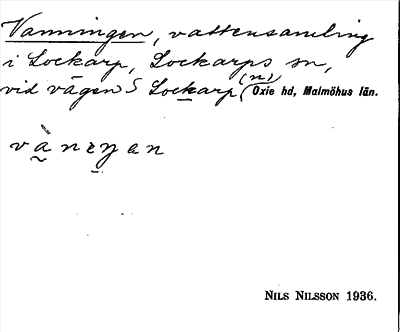 Vanningen, vattensamling
i Lockarp, Lockarps sn,
vid vägen S Lockarp (n) Oxie hd, Malmöhus län.
NILS NILSSON 1936.